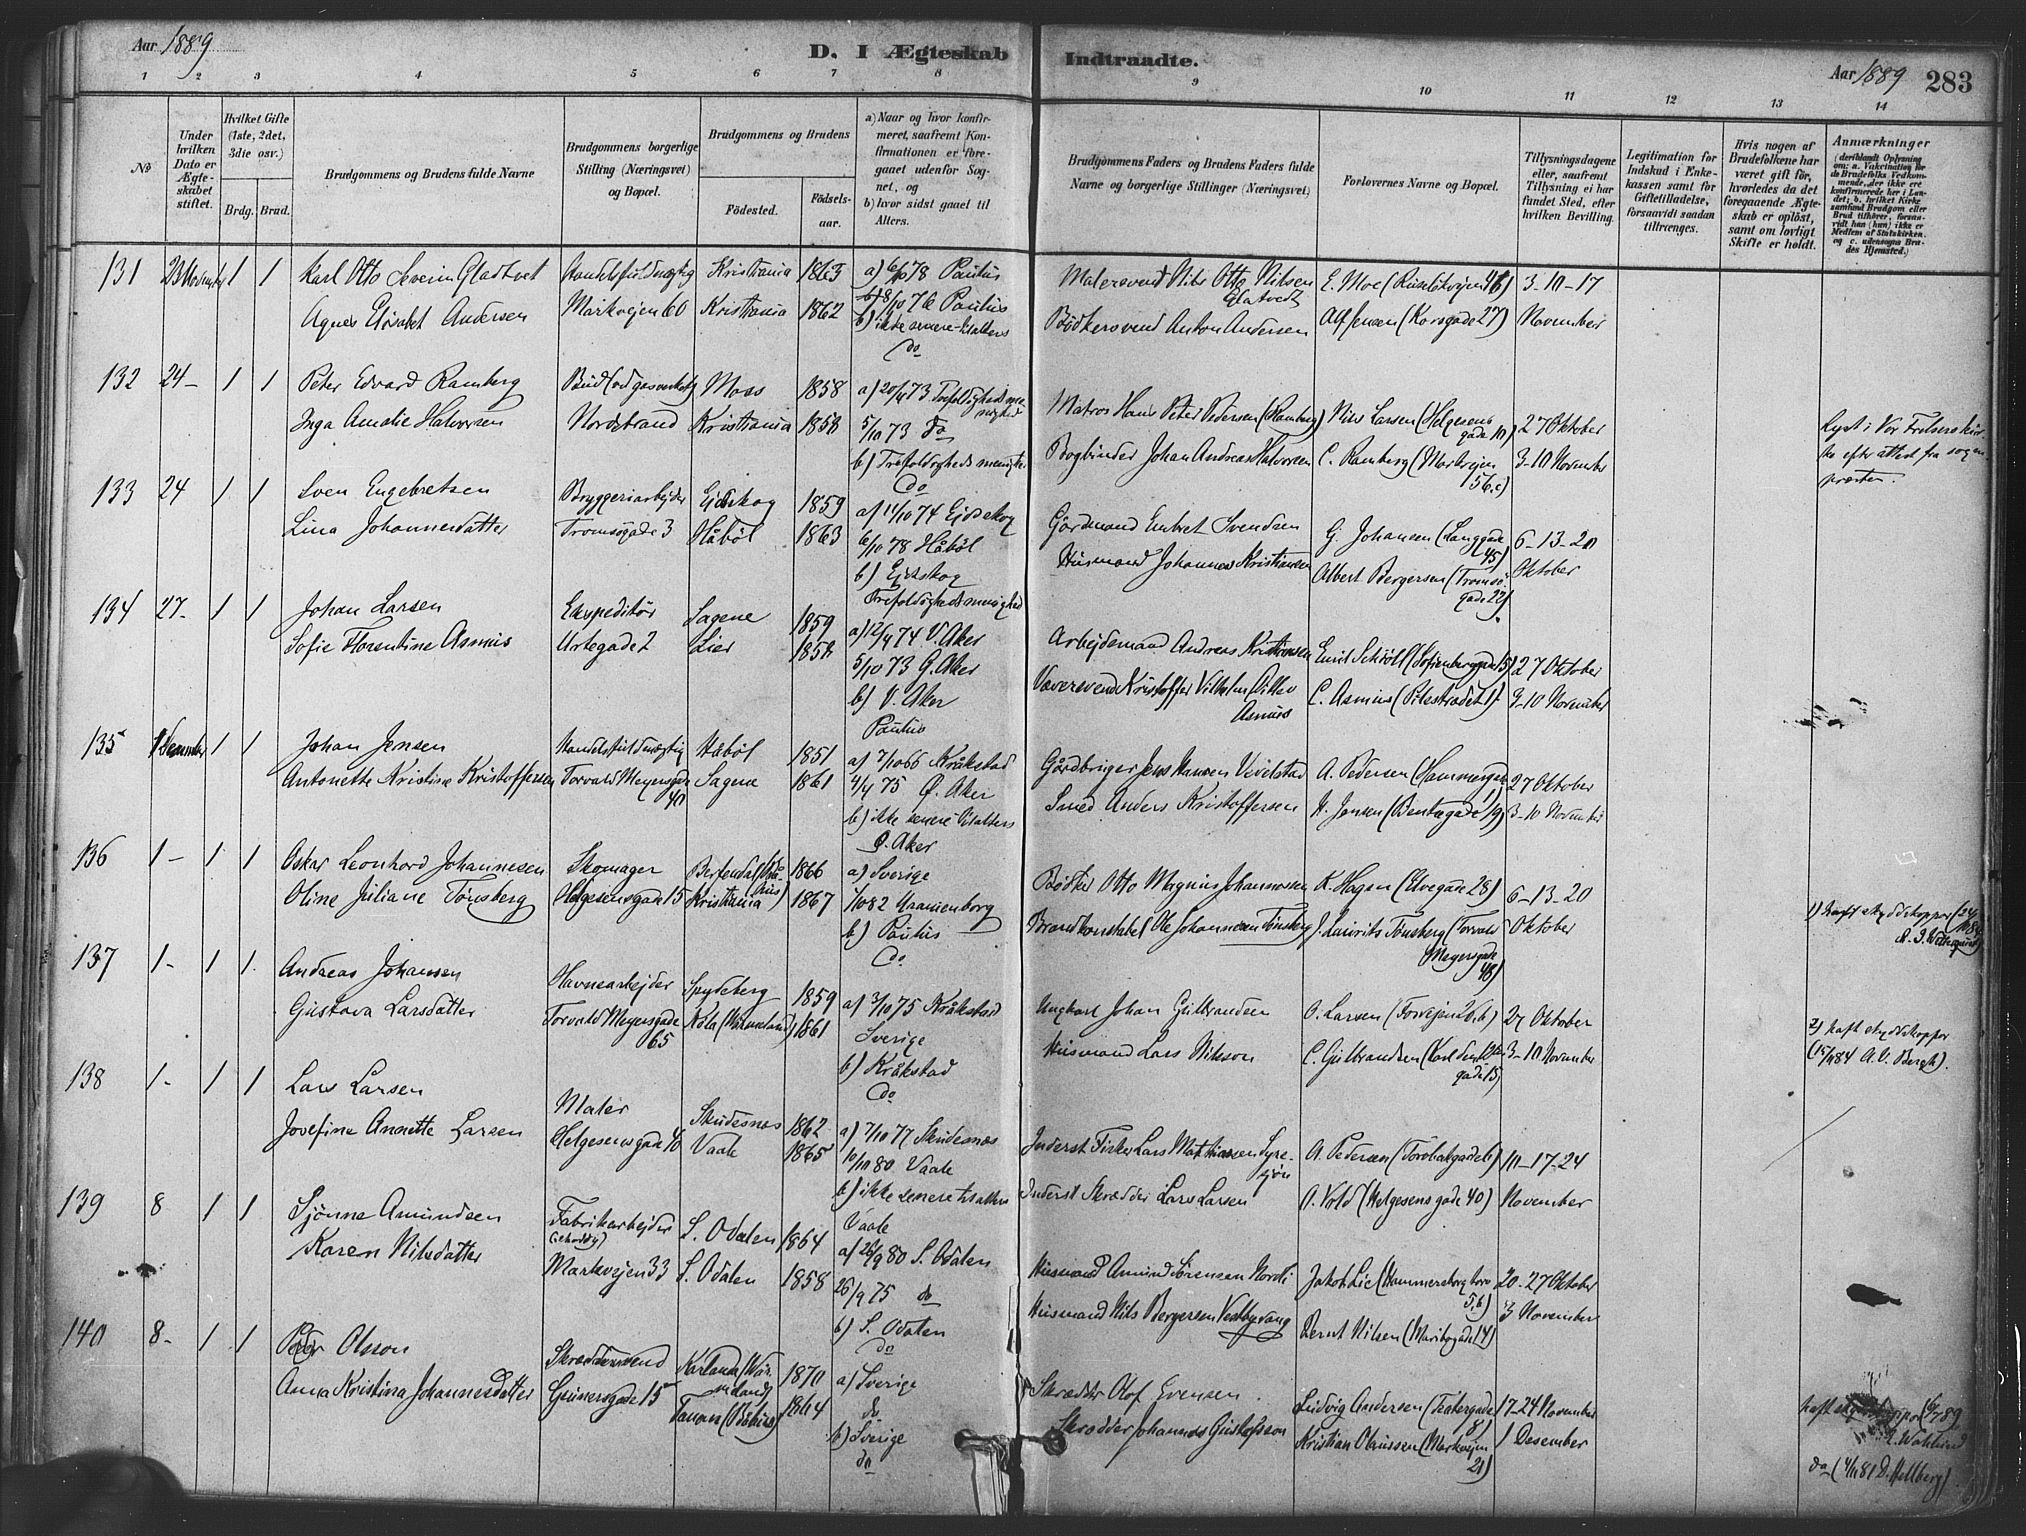 Aar 1889
D. I Ægteskab Indtraadte.
Aar 1889 283
1 2 3 4 5 6 7 8 9 10 11 12 13 14
No
Under hvilken Dato er Ægte-skabet stiftet.
Hvilket Gifte (1ste, 2det, 3die osv.)
Brdg. Brud.
Brudgommens og Brudens fulde Navne
Brudgommens borgerlige Stilling (Næringsvei) og Bopæl.
Brudgommens og Brudens
Fødested. Fødsels-aar.
a) Naar og hvor konfir-meret, saafremt Kon-firmationen er fore-gaaet udenfor Sog-net, og
b) hvor sidst gaaet til Alters.
Brudgommens Faders og Brudens Faders fulde Navne og borgerlige Stillinger (Næringsvei)
Forlovernes Navne og Bopæl.
Tillysningsdagene eller, saafremt Tillysning ei har fundet Sted, efter hvilken Bevilling.
Legitimation for Indskud i Enke-kassen samt for Giftetilladelse, forsaavidt saadan tiltrænges.
Hvis nogen af Brudefolkene har været gift før, hvorledes da det foregaaende Ægte-skab er opløst, samt om lovligt Skifte er holdt.
Anmærkninger
131 23 November 1 1 Karl Otto Severin Gladtvet Handelsfuldmægtig Kristiania 1863 a) 6/10 78 Paulus
Malersvend Nils Otto Nilsen Glatvedt E. Moe 3-10-17
Agnes Elisabet Andersen Markvejen 60 Kristiania 1862 8/10 76 Paulus
b) ikke senere
do
Bødkersvend Anton Andersen Alf Jensen (Korsgade 27) November
132 24- 1 1 Peter Edvard Ramberg Bud Moss 1858 a) 20/4 73 Trefoldigheds me-nighed
Matros Hans Peter Pedersen (Ramberg) Nils Larsen (Helgesens gade 10) 27 Oktober
Inga Amalie Halvorsen Nordstrand Kristiania 1858 5/10 73 do
b) Trefoldigheds menighed
do
Bogbinder Johan Andreas Halvorsen C. Ramberg (Markvejen 56.c) 3-10 November
Lyst i Vor Frelsers kir-ke efter attest fra sogne præsten.
133 24 1 1 Sven Engebretsen Bryggeriarbejder Ejdskog 1859 a) 11/10 74 Ejdskog
Gårdmand Embret Svendsen G. Johansen (Langgade 45) 6-13-20
Lina Johannesdatter Tromsøgade 3 Håbøl 1863 6/10 78 Håbøl
b) Ejdskog
Trefoldigheds menighed
Husmand Johannes Kristiansen Albert Bergersen (Tromsø gade 22) Oktober
134 27- 1 1 Johan Larsen Ekspeditør Sagene 1859 a) 12/4 74 V. Aker
Arbejdsmand Andreas Kristiansen Emil Schiøll (Sofienberggade 15) 27 Oktober
Sofie Florentine Asmus Urtegade 2 Lier 1858 5/10 73 G. Aker
b) V. Aker
Paulus
Væversvend Kristoffer Vilhelm Ditlev Asmus C. Asmus (Pilestrædet 1) 3-10 November
135 1 Desember 1 1 Johan Jensen Handelsfuldmægtig Håbøl 1851 a) 7/10 66 Kråkstad
Gårdbruger Jens Hansen Vevelstad A. Pedersen 27 Oktober
Antonette Kristine Kristoffersen Torvald Meyersgade 40 Sagene 1861 4/4 75 Ø. Aker
b) ikke senere
Ø. Aker
Smed Anders Kristoffersen H. Jensen (Bentsegade 19) 3-10 November
136 1- 1 1 Oskar Leonhard Johannesen Skomager 1866 a) Sverige
Bødker Otto Magnus Johannesen K. Hagen (Elvegade 28) 6-13-20
Oline Juliane Tønsberg Helgesensgade 15 Kristiania 1867 1/10 82 Uranienborg
b) Paulus
do
Brandkonstabel Ole Johannesen Tønsberg J. Laurits Tønsberg (Torvald Meyersgade 48) Oktober
1) haft skyddskoppor
137 1- 1 1. Andreas Johansen Havnearbejder Spydeberg 1859 a) 3/10 75 Kråkstad
Ungkarl Johan Gulbrandsen O. Larsen 27 Oktober
Gustava Larsdatter Torvald Meyersgade 65 Kola (Wärmeland) 1861 Sverige
b) Kråkstad
do
Husmand Lars Nilsson C. Gulbrandsen 3-10 November
2) haft skyddskoppor
(15/9 84 A. V. Bergh).
138 1- 1 1 Lars Larsen Maler Skudesnæs 1862 a) 7/10 77 Skudesnæs
Inderst Fisker Lars Matthiassen A. Pedersen 10-17-24
Josefine Annette Larsen Helgesensgade 40 Vaale 1865 10/10 80 Vaale
b) ikke senere
Vaale
Inderst Skrædder Lars Larsen O. Vold (Helgesens gade 40) November
139 8 1 1 Sjønne Amundsen Fabrikarbejder S. Odalen 1864 a) 26/9 80 S. Odalen
Husmand Amund Sørensen Nordli Jakob Lie (Hammersborg torv 5,b) 20-27 Oktober
Karen Nilsdatter Markvejen 33 S. Odalen 1858 26/9 75 do
b) S. Odalen
do
Husmand Nils Bergersen Bernt Nilsen (Maribogade 14) 3 November
140 8- 1 1 Peder Olsson Skræddersvend 1870 a) Sverige
Skrædder Olof Evensen Ludvig Andersen (Teatergade 8) 17-24 November
Anna Kristina Johannesdatter Grünersgade 15 1864 do
b) Sverige
do
Skrædder Johannes Gustafsson Kristian Olaussen (Markvejen 21) 1 Desember
do (4/11 81 D. Hellberg)